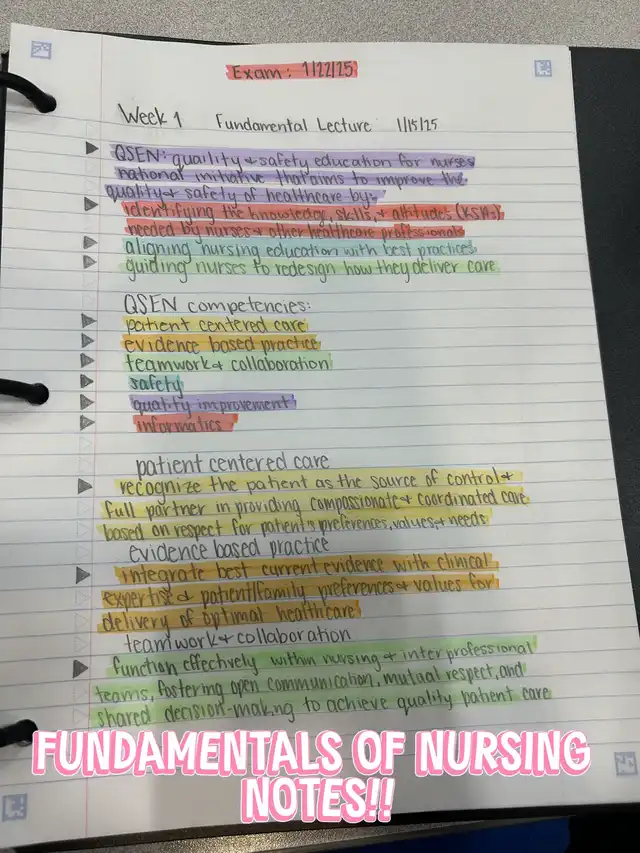 Exam: 1/22/25
Week 1 Fundamental Lecture 1/15/25
QSEN: quaility & safety education for nurses
national initiative that aims to improve the
quality & safety of healthcare by:
identifying the knowledge, skills, & attitudes (KSAs)
needed by nurses & other healthcare professionals
aligning nursing education with best practices
guiding nurses to redesign how they deliver care
QSEN competencies:
patient centered care
evidence based practice
teamwork & collaboration
safety
quality improvement
informatics
patient centered care
recognize the patient as the source of control &
full partner in providing compassionate & coordinated care
based on respect for patient's preferences, values, & needs
evidence based practice
integrate best current evidence with clinical
expertise & patient/family preferences & values for
delivery of optimal healthcare
teamwork & collaboration
function effectively within nursing & inter professional
teams, fostering open communication, mutual respect, and
shared decision-making to achieve quality patient care
FUNDAMENTALS OF NURSING
NOTES!!